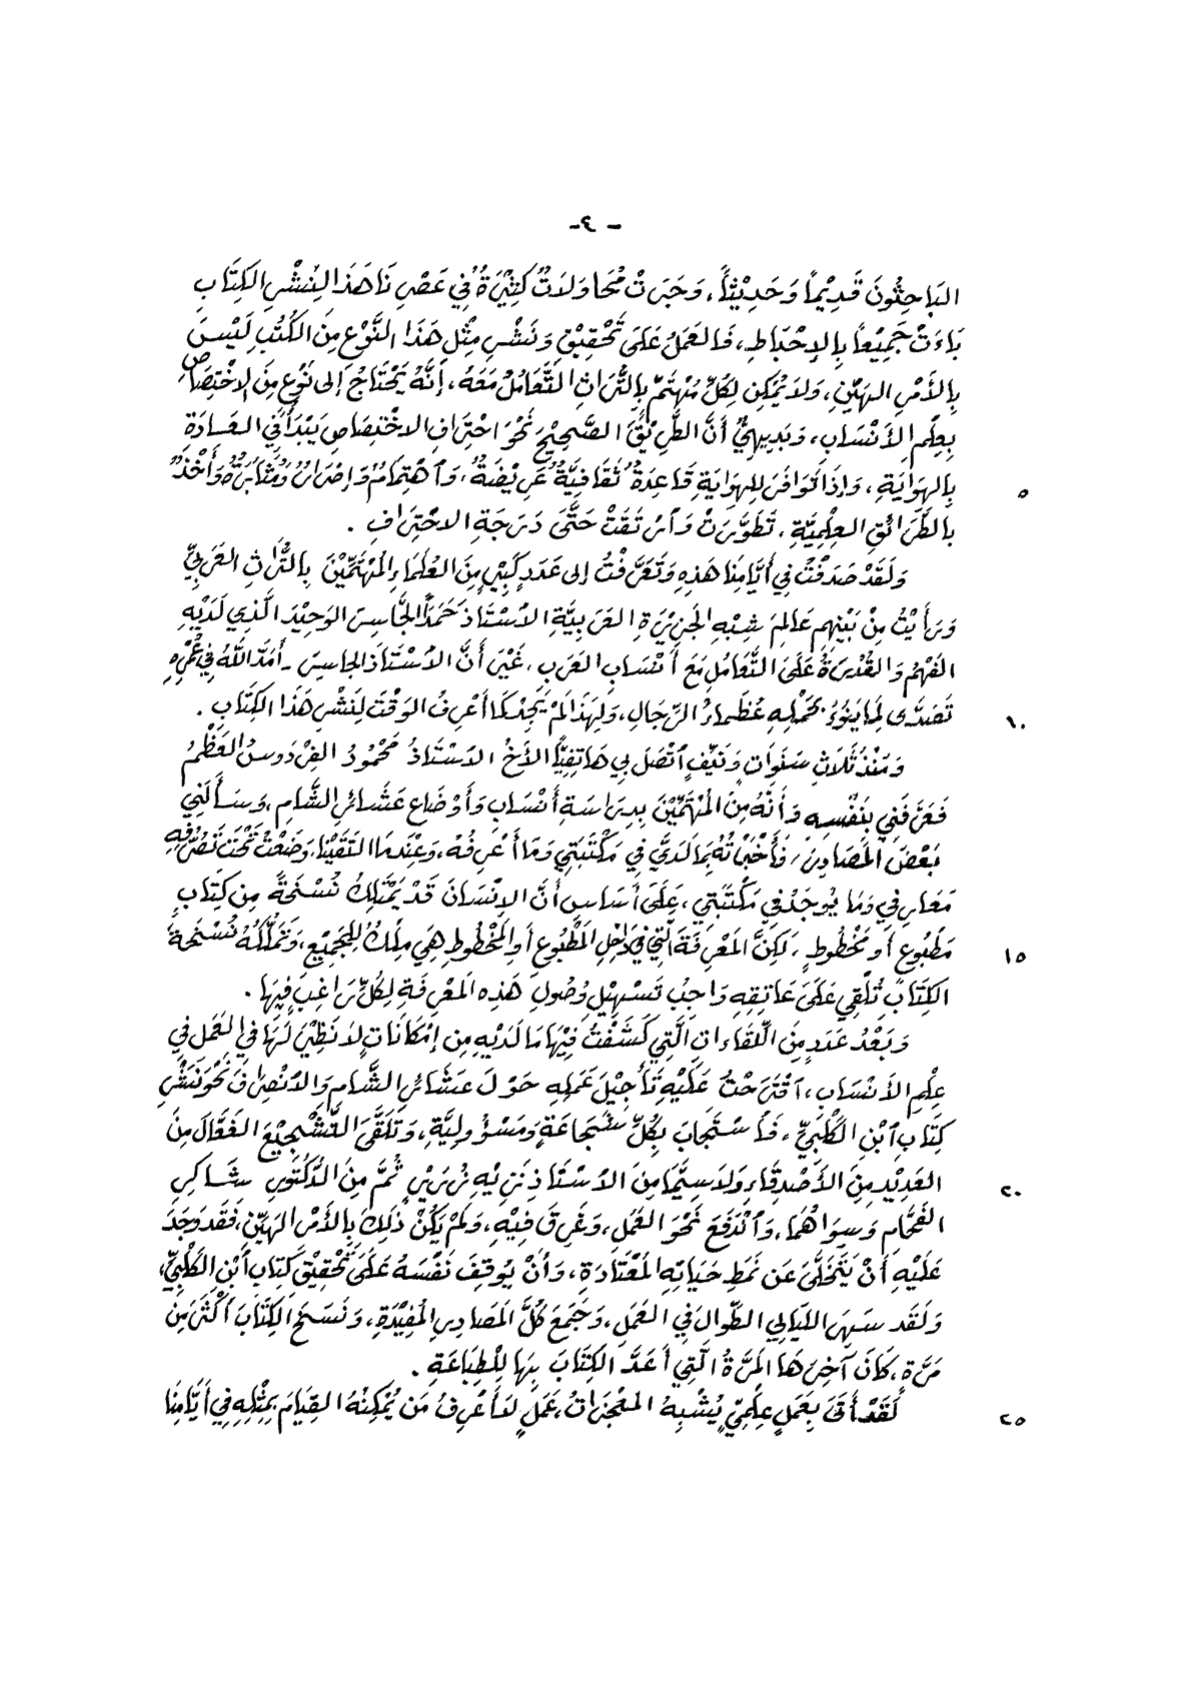 - ٤ -
البَاحِثُونَ قَدِيْماً وَحَدِيْثاً، وَجَرَتْ مُحَاوَلَاتٌ كَثِيْرَةٌ فِي عَصْرِنَا هَذَا لِنَشْرِ الكِتَابِ
بَاءَتْ جَمِيْعاً بِالإِحْبَاطِ، فَالعَمَلُ عَلَى تَحْقِيْقِ وَنَشْرِ مِثْلِ هَذَا النَّوْعِ مِنَ الكُتُبِ لَيْسَ
بِالأَمْرِ الهَيِّنِ، وَلَا يُمْكِن لِكُلِّ مُهْتَمٍّ بِالتُّرَاثِ التَّعَامُلُ مَعَهُ، إِنَّهُ يَحْتَاجُ إِلى نَوْعٍ مِنَ الاِخْتِصَاصِ
بِعِلْمِ الأَنْسَابِ، وَبَدِيهِيٌّ أَنَّ الطَّرِيْقَ الصَّحِيْحَ نَحْوَ احْتِرَافِ الاخْتِصَاصِ يَبْدَأُ فِي العَادَةِ
٥ بِالهِوَايَةِ، وَإِذَا تَوَافَرَ لِلهِوَايَةِ قَاعِدَةٌ ثَقَافِيَّةٌ عَرِيْضَةٌ، وَٱهْتِمَامٌ وَإِصْرَارٌ وَمُثَابَرَةٌ وَأَخْذٌ
بِالطَّرَائِقِ العِلْمِيَّةِ، تَطَوَّرَتْ وَٱرْتَقَتْ حَتَّى دَرَجَةِ الاحْتِرَافِ.
وَلَقَدْ صَدَفْتُ فِي أَيَّامِنَا هَذِهِ وَتَعَرَّفْتُ إِلى عَدَدٍ كَبِيْرٍ مِنَ العُلَمَاءِ المُهْتَمِّيْنَ بِالتُّرَاثِ العَرَبِيِّ
وَرَأَيْتُ مِنْ بَيْنِهِم عَالِمَ شِبْهِ الجَزِيْرَةِ العَرَبِيَّةِ الأُسْتَاذَ حَمَدَ الجَاسِرِ الوَحِيْدَ الَّذِي لَدَيْهِ
الفَهْمُ وَالقُدْرَةُ عَلَى التَّعَامُلِ مَعَ أَنْسَابِ العَرَبِ، غَيْرَ أَنَّ الأُسْتَاذَ الجَاسِرَ - أَمَدَّ اللهُ فِي عُمُرِهِ
١٠ تَصَدَّى لِمَا يَنُوْءُ بِحَمْلِهِ عُظَمَاءُ الرِّجَالِ، وَلِهَذَا لَمْ يَجِدْ كَمَا أَعْرِفُ الوَقْتَ لِنَشْرِ هَذَا الكِتَابِ.
وَمُنْذُ ثَلَاثِ سَنَوَاتٍ وَنَيِّفٍ ٱتَّصَلَ بِي هَاتِفِيّاً الأَخُ الأُسْتَاذُ مَحْمُودُ الفِرْدَوسِ العَظْمُ
فَعَرَّفَنِي بِنَفْسِهِ وَأَنَّهُ مِنَ المُهْتَمِّيْنَ بِدِرَاسَةِ أَنْسَابِ وَأَوْضَاعِ عَشَائِرِ الشَّامِ، وَسَأَلَنِي
بَعْضَ المَصَادِرِ، فَأَخْبَرْتُهُ بِمَا لَدَيَّ فِي مَكْتَبَتِي وَمَا أَعْرِفُهُ، وَعِنْدَمَا التَقَيْنَا، وَضَعْتُ تَحْتَ تَصَرُّفِهِ
مَعَارِفِي وَمَا يُوجَدُ فِي مَكْتَبَتِي، عَلَى أَسَاسِ أَنَّ الإِنْسَانَ قَدْ يَمْتَلِكُ نُسْخَةً مِن كِتَابٍ
١٥ مَطْبُوعٍ أَو مَخْطُوطٍ، لَكِنَّ المَعْرِفَةَ الَّتِي فِي دَاخِلِ المَطْبُوعِ أَوِ المَخْطُوطِ هِيَ مِلْكٌ لِلجَمِيْعِ، وَتَمَلُّكُهُ نُسْخَةَ
الكِتَابِ تُلْقِي عَلَى عَاتِقِهِ وَاجِبَ تَسْهِيْلِ وُصُولِ هَذِهِ المَعْرِفَةِ لِكُلِّ رَاغِبٍ فِيهَا.
وَبَعْدُ عَدَدٍ مِنَ اللِّقَاءَاتِ الَّتِي كَشَفْتُ فِيْهَا مَا لَدَيْهِ مِن إِمْكَانَاتٍ لَا نَظِيْرَ لَهَا فِي العَمَلِ فِي
عِلْمِ الأَنْسَابِ، ٱقْتَرَحْتُ عَلَيْهِ تَأْجِيْلَ عَمَلِهِ حَوْلَ عَشَائِرِ الشَّامِ وَالاِنْصِرَافَ نَحْوَ نَشْرِ
كِتَابِ ٱبْنِ الكَلْبِيِّ، فَٱسْتَجَابَ بِكُلِّ شَجَاعَةٍ وَمَسْؤُولِيَّةٍ، وَتَلَقَّى التَّشْجِيْعَ الفَعَّالَ مِنَ
٢٠ العَدِيْدِ مِنَ الأَصْدِقَاءِ وَلَا سِيَّمَا مِنَ الأُسْتَاذِ نَزِيْهِ زُرَيْرٍ ثُمَّ مِنَ الدُّكْتُورِ شَاكِرِ
الفَحَّامِ وَسِوَاهُمَا، وَٱنْدَفَعَ نَحْوَ العَمَلِ، وَغَرِقَ فِيْهِ، وَلَمْ يَكُنْ ذَلِكَ بِالأَمْرِ الهَيِّنِ، فَقَد وَجَدَ
عَلَيْهِ أَنْ يَتَخَلَّى عَن نَمَطِ حَيَاتِهِ المُعْتَادَةِ، وَأَنْ يُوقِفَ نَفْسَهُ عَلَى تَحْقِيْقِ كِتَابِ ٱبْنِ الكَلْبِيِّ،
وَلَقَد سَهِرَ اللَّيَالِيَ الطِّوَالَ فِي العَمَلِ، وَجَمَعَ كُلَّ المَصَادِرِ المُفِيْدَةِ، وَنَسَخَ الكِتَابَ أَكْثَرَ مِن
مَرَّةٍ، كَانَ آخِرَهَا المَرَّةُ الَّتِي أَعَدَّ الكِتَابَ بِهَا لِلْطِبَاعَةِ.
٢٥ لَقَدْ أَتَى بِعَمَلٍ عِلْمِيٍّ يُشْبِهُ المُعْجِزَاتُ، عَمَلٍ لَا أَعْرِفُ مَن يُمْكِنُهُ القِيَامَ بِمِثْلِهِ فِي أَيَّامِنَا